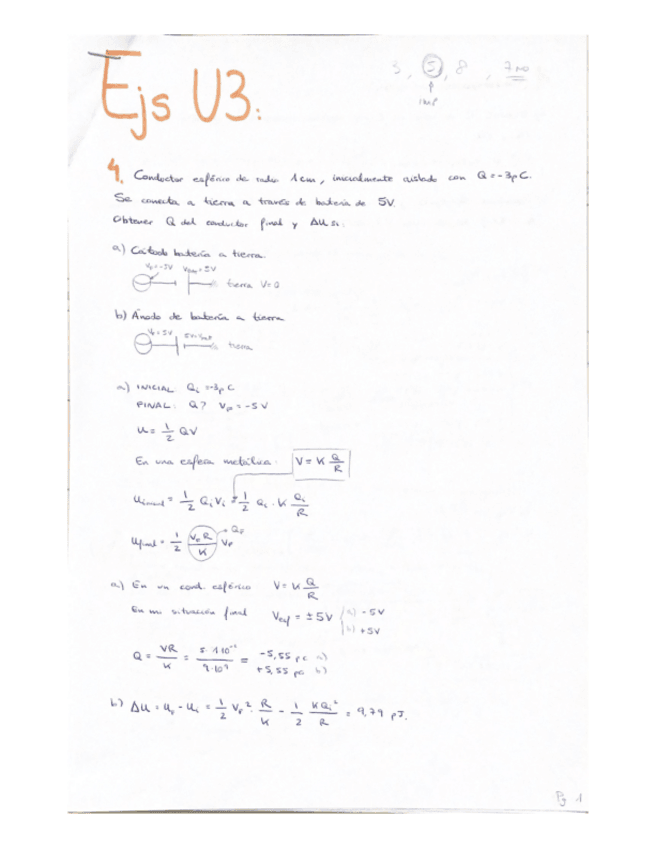 Ejs U3:
3, 5, 8, 7 no
4. Conductor esférico de radio 1cm, inicialmente aislado con Q=-3pC.
Se conecta a tierra a través de batería de 5V.
Obtener Q del conductor final y ΔU si:
a) Cátodo batería a tierra.
tierra V=0
b) Ánodo de batería a tierra
tierra
a) INICIAL Qi=-3pC
FINAL: Q? Vf=-5V
U = 1/2 QV
En una esfera metálica: V = K Q/R
Uinicial = 1/2 Qi Vi = 1/2 Qi · K Qi/R
Ufinal = 1/2 VfR/K Vf → Qf
a) En un cond. esférico V = K Q/R
En mi situación final Vesf = ±5V a) -5V
b) +5V
Q = VR/K = 5·1·10⁻²/9·10⁹ = -5,55 pC a)
+5,55 pC b)
b) ΔU = Uf - Ui = 1/2 Vf² · R/K - 1/2 KQi²/R = 9,79 pJ.
Pg 1